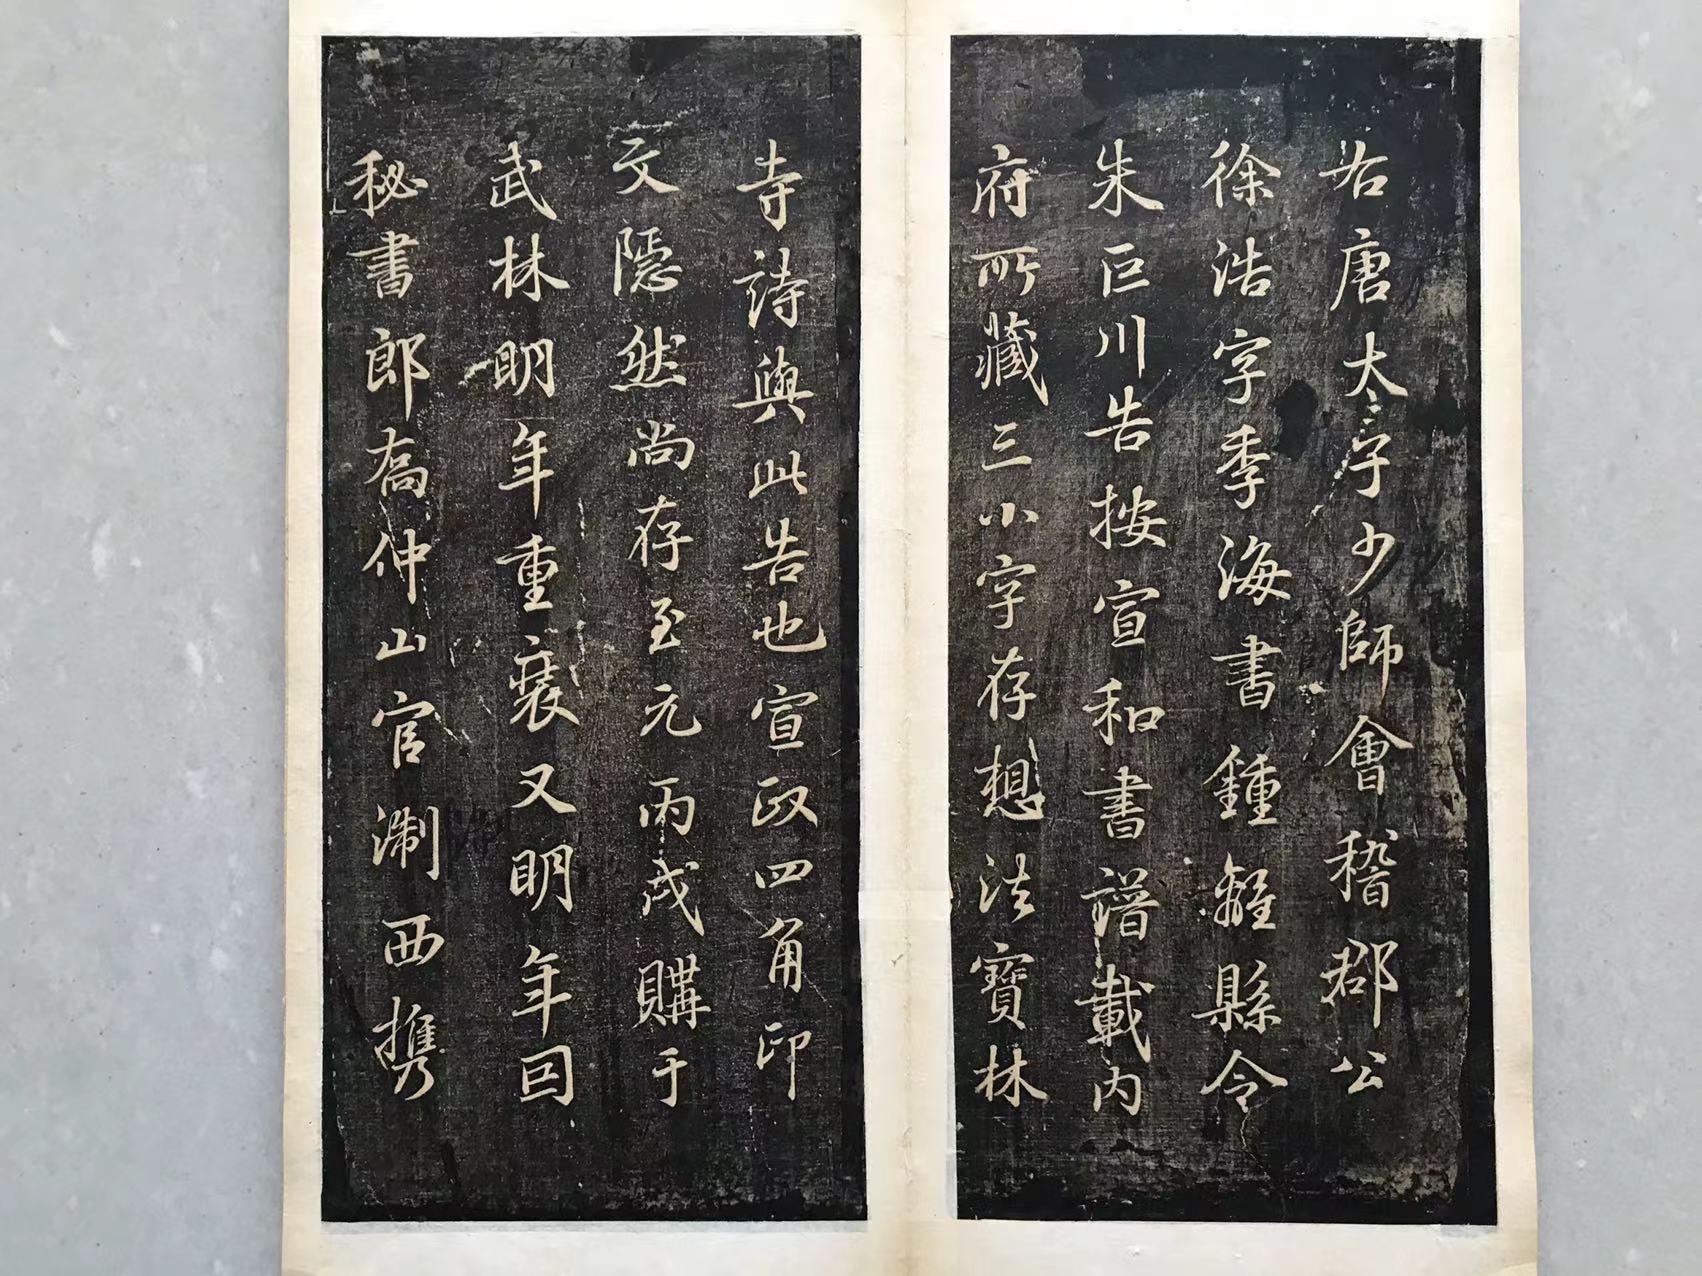 右唐太子少師會稽郡公
徐浩字季海書鍾離縣令
朱巨川告按宣和書譜載内
府所藏三小字存想法寳林
寺詩與此告也宣政四角印
文隱然尚存至元丙戌購于
武林明年重裝又明年回
秘書郎喬仲山官淛西携